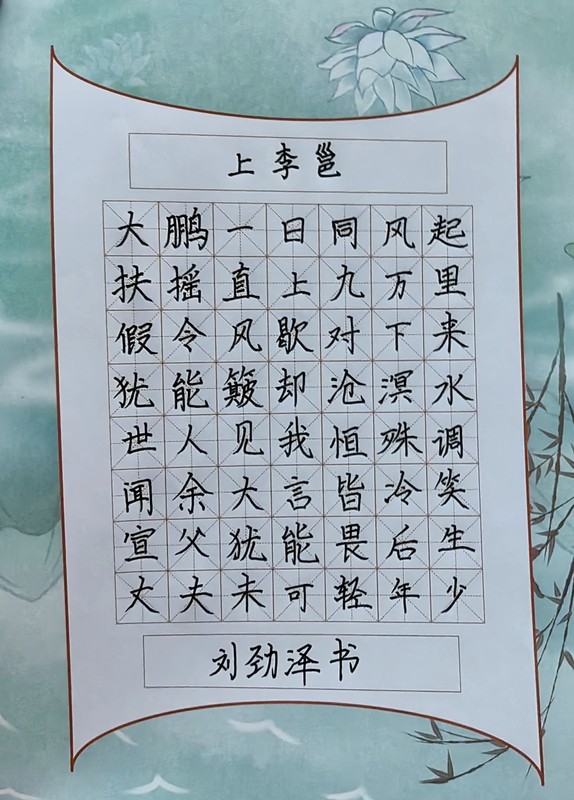 上李邕
大鹏一日同风起
扶摇直上九万里
假令风歇对下来
犹能簸却沧溟水
世人见我恒殊调
闻余大言皆冷笑
宣父犹能畏后生
丈夫未可轻年少
刘劲泽书